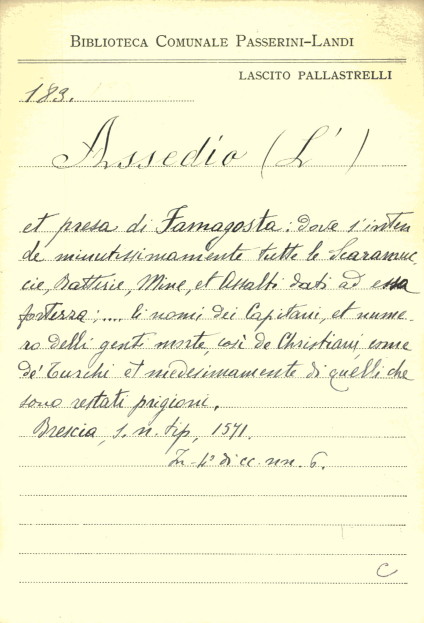 BIBLIOTECA COMUNALE PASSERINI-LANDI
LASCITO PALLASTRELLI
183.
Assedio (L')
et presa di Famagosta: dove s'inten
de minutissimamente tutte le Scaramuc
cie, Batterie, Mine, et Assalti dati ad essa
fortezza; .... li nomi dei Capitani, et nume-
ro delli genti morte, così de Christiani, come
de' Turchi et medesimamente di quelli che
sono restati prigioni.
Brescia, s. n. tip, 1571.
In-4° di cc. nn. 6.
C